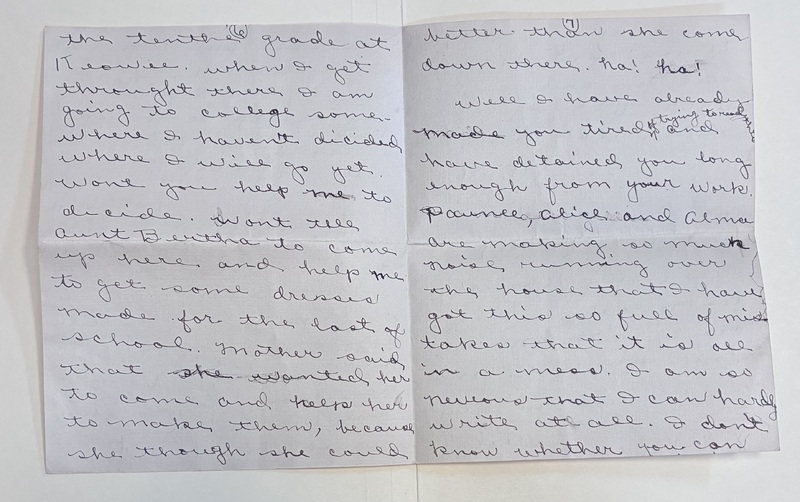 (6)
the tenthe grade at
Keowee. when I get
throught there I am
going to college some-
where I havent dicided
where I will go yet.
Wont you help me to
decide. Wont tell
Aunt Bertha to come
up here and help me
to get some dresses
made for the last of
school. Mother said
that she wanted her
to come and help her
to make them, because
she though she could
(7)
better than she come
down there. ha! ha!
Well I have already
made you tired trying to read and
have detained you long
enough from your work.
Paunee, Alice and Alma
are making so much
noise running over
the house that I have
got this so full of mis
takes that it is all
in a mess. I am so
nervous that I can hardy
write at all. I don't
know whether you can